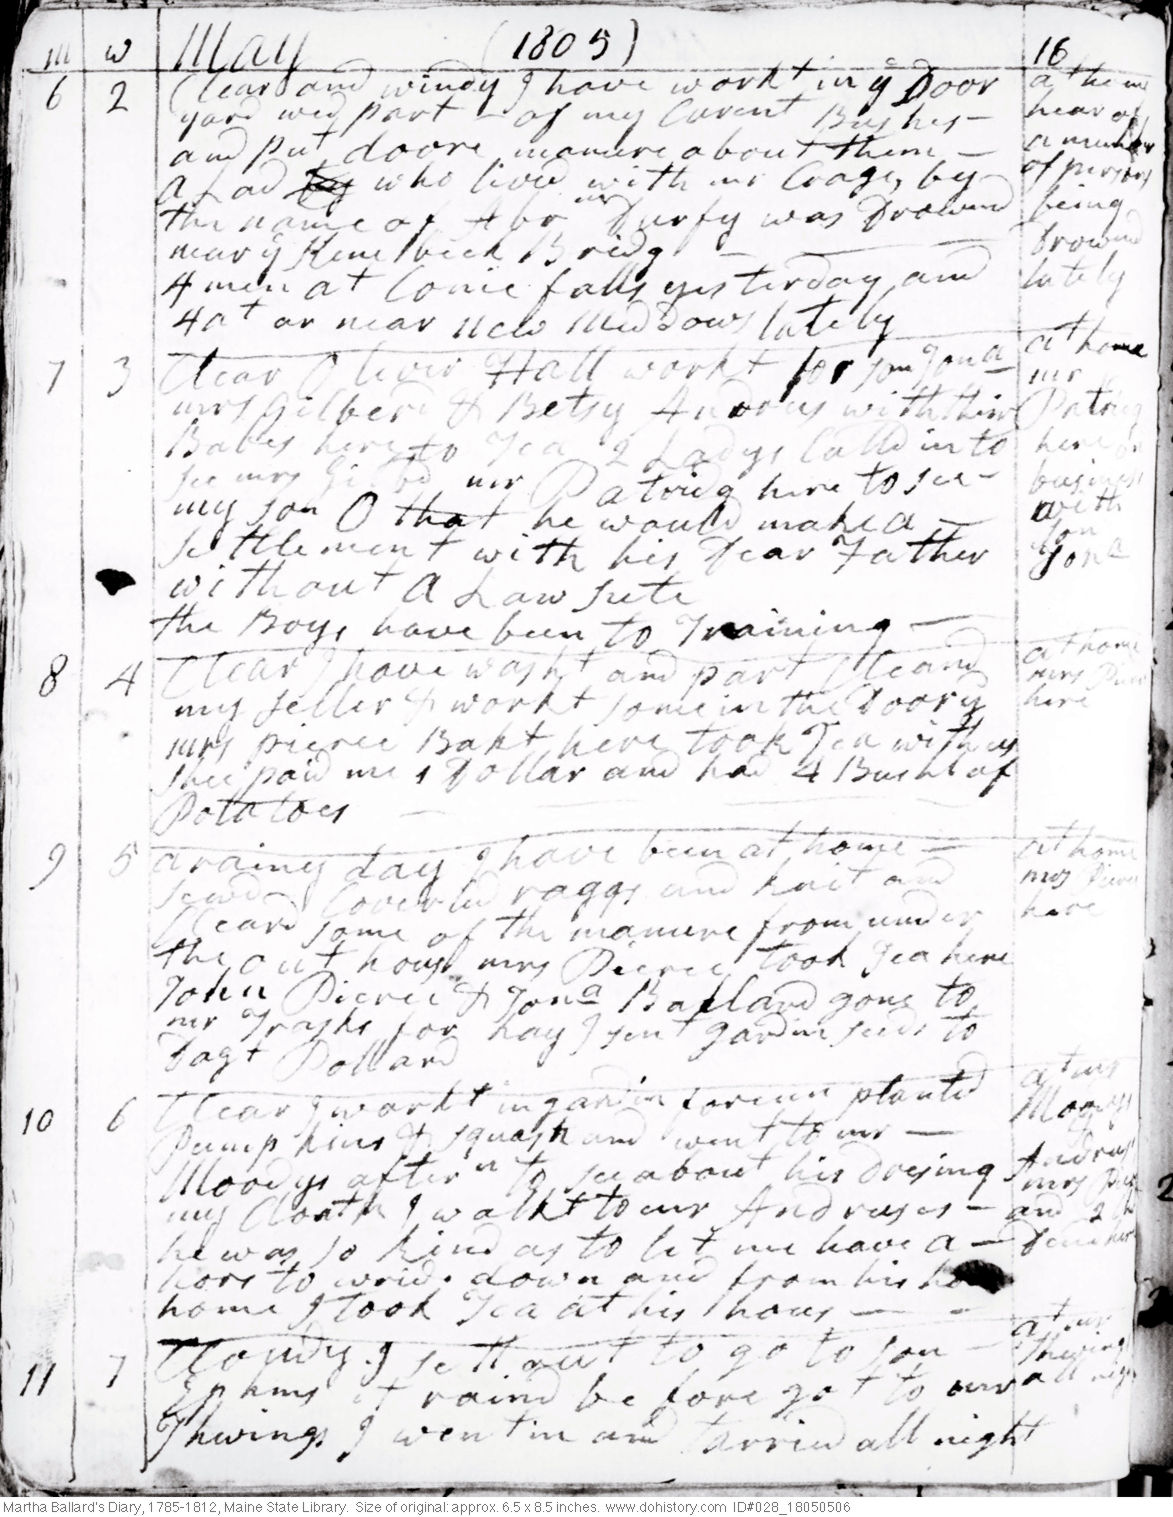 m w May (1805) 16
6 2 Clear and windy I have workt in ye Door
yard wed part of my Curent Bushes
and put doore manure about them
a Lad who lived with mr Crage, by
the name of Abr Durfy was Drownd
near ye Kene beck Bridg
4 men at Conie falls yesterday and
4 at or near New Meddows lately
at home
hear of
a number
of persons
being
Drownd
lately
7 3 Clear Oliver Hall workt for son Jona
mrs Gilbert & Betsy Andrus with thier
Babes here to Tea 2 Ladys Calld in to
see mrs Gilbd mr Patridg here to see
my son O that he would make a
settlement with his Dear Father
without a Law sute
the Boys have been to Training
at home
mr
Patridg
here on
business
with
son
Jona
8 4 Clear I have washt and part Cleand
my seller & workt some in the Doory
mrs pierce Bakt here took Tea with us
shee paid me 1 Dollar and had 4 Bushl of
Potatoes
at home
mrs
here
9 5 a rainey day I have been at home
sewd Coverlid raggs and knit and
Cleard some of the manure from under
the out hous mrs Pierce took Tea here
John Pierce & Jona Ballard gone to
mr Trasks for hay I sent gardin seeds to
Dagt Pollard
at home
mrs Pierce
here
10 6 Clear I workt in gardin foreun plantd
Pumpkins & squash and went to mr
Moodys aftern to see about his dresing
my Cloath I walkt to mr Andruses
he was so kind as to let me have a
hors to down and from his
home I took Tea at his hous
at mr
Moodys
Andrus
mrs
and 2
11 7 Cloudy. I sett out to go to son
Ephms it raind before got to mr
Thwings I went in and tarried all night
at mr
Thwings
all night
Martha Ballard's Diary, 1785-1812, Maine State Library. Size of original: approx. 6.5 x 8.5 inches. www.dohistory.com ID#028_18050506